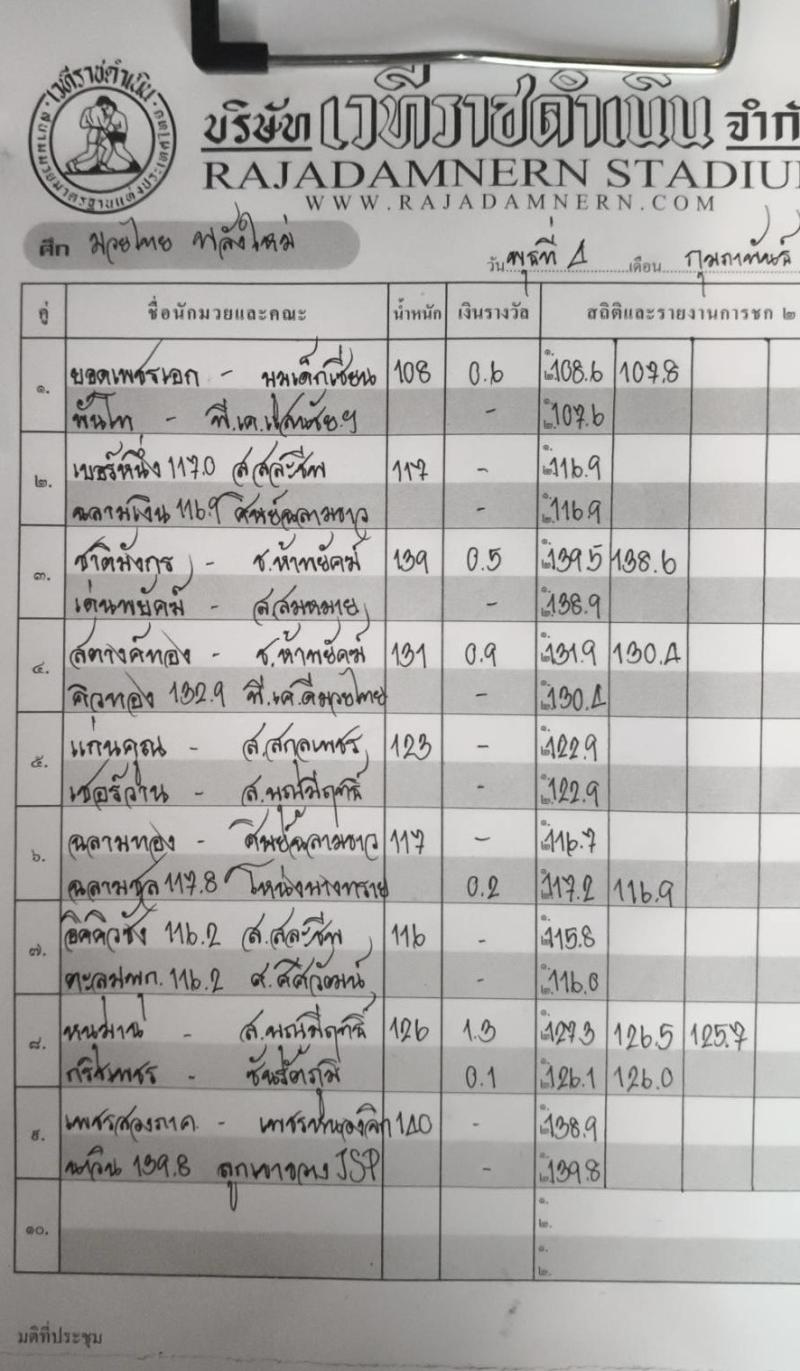 เวทีราชดำเนิน
บริษัท เวทีราชดำเนิน จำกั
RAJADAMNERN STADIU
WWW.RAJADAMNERN.COM
ศึก มวยไทย พลังใหม่
วัน พุธที่ 4 เดือน กุมภาพันธ์
คู่ ชื่อนักมวยและคณะ น้ำหนัก เงินรางวัล สถิติและรายงานการชก ๒
๑. ยอดเพชรเอก - นมเด็กเซียน 108 0.6 ๑. ๒. 108.6 107.8
พันไท - พี.เค.แสนชัยฯ - ๑. ๒. 107.6
๒. เบอร์หนึ่ง 117.0 ส.สละชีพ 117 - ๑. ๒. 116.9
ฉลามเงิน 116.9 ศิษย์ฉลามขาว - ๑. ๒. 116.9
๓. ชาติมังกร - ช.ห้าพยัคฆ์ 139 0.5 ๑. ๒. 139.5 138.6
เด่นพยัคฆ์ - ส.สมหมาย - ๑. ๒. 138.9
๔. สตางค์ทอง - ช.ห้าพยัคฆ์ 131 0.9 ๑. ๒. 131.9 130.4
คิวทอง 132.9 พี.เค.ดีมวยไทย - ๑. ๒. 130.4
๕. แก่นคูณ - ส.สกุลเพชร 123 - ๑. ๒. 122.9
เชอร์วาน - ส.พูนมีฤทธิ์ - ๑. ๒. 122.9
๖. ฉลามทอง - ศิษย์ฉลามขาว 117 - ๑. ๒. 116.7
ฉลามชุล 117.8 โหน่งบางทราย 0.2 ๑. ๒. 117.2 116.9
๗. อิคคิวซัง 116.2 ส.สละชีพ 116 - ๑. ๒. 115.8
116.2 ศ.ศิศิวัฒน์ - ๑. ๒. 116.0
๘. หนุมาน - ส.พูนมีฤทธิ์ 126 1.3 ๑. ๒. 127.3 126.5 125.7
กริชเพชร - ชันรัตภูมิ 0.1 ๑. ๒. 126.1 126.0
๙. เพชรสองภาค - 140 - ๑. ๒. 138.9
นาวิน 139.8 ลูกเขาขวาง JSP - ๑. ๒. 139.8
๑๐. ๑.
๒.
๑.
๒.
มติที่ประชุม